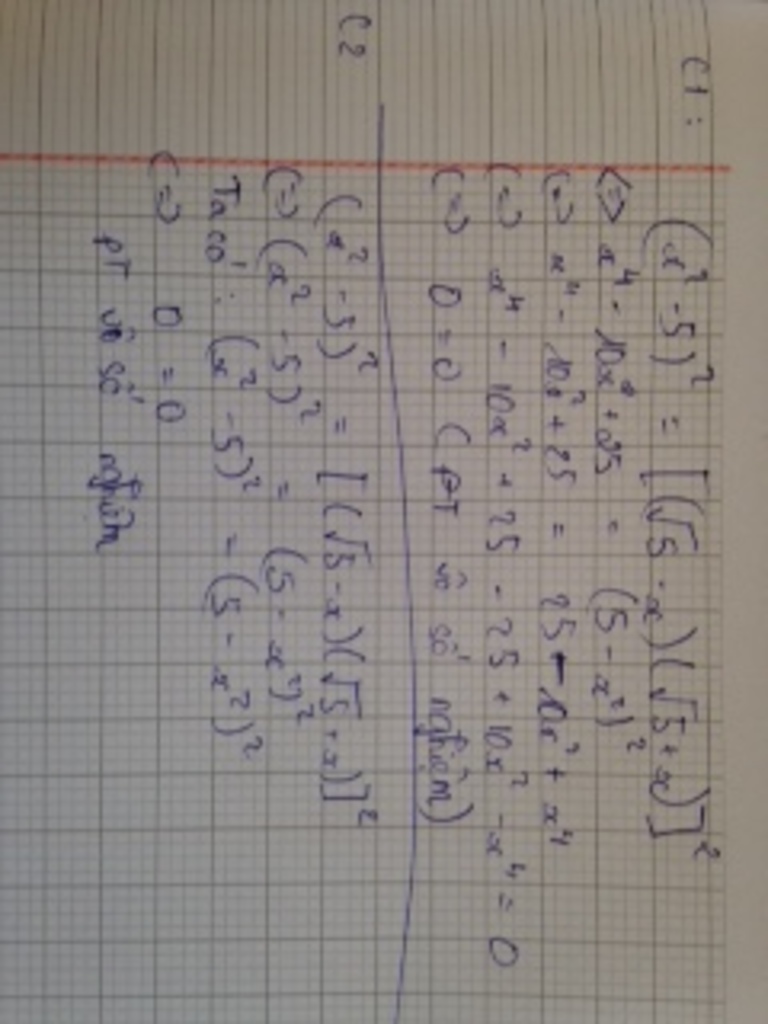 C1:
(x² - 5)² = [(√5 - x)(√5 + x)]²
<=> x⁴ - 10x² + 25 = (5 - x²)²
(=) x⁴ - 10x² + 25 = 25 - 10x² + x⁴
(=) x⁴ - 10x² + 25 - 25 + 10x² - x⁴ = 0
(=) 0 = 0 (PT vô số nghiệm)
C2
(x² - 5)² = [(√5 - x)(√5 + x)]²
(=) (x² - 5)² = (5 - x²)²
Ta có: (x² - 5)² = (5 - x²)²
(=) 0 = 0
PT vô số nghiệm